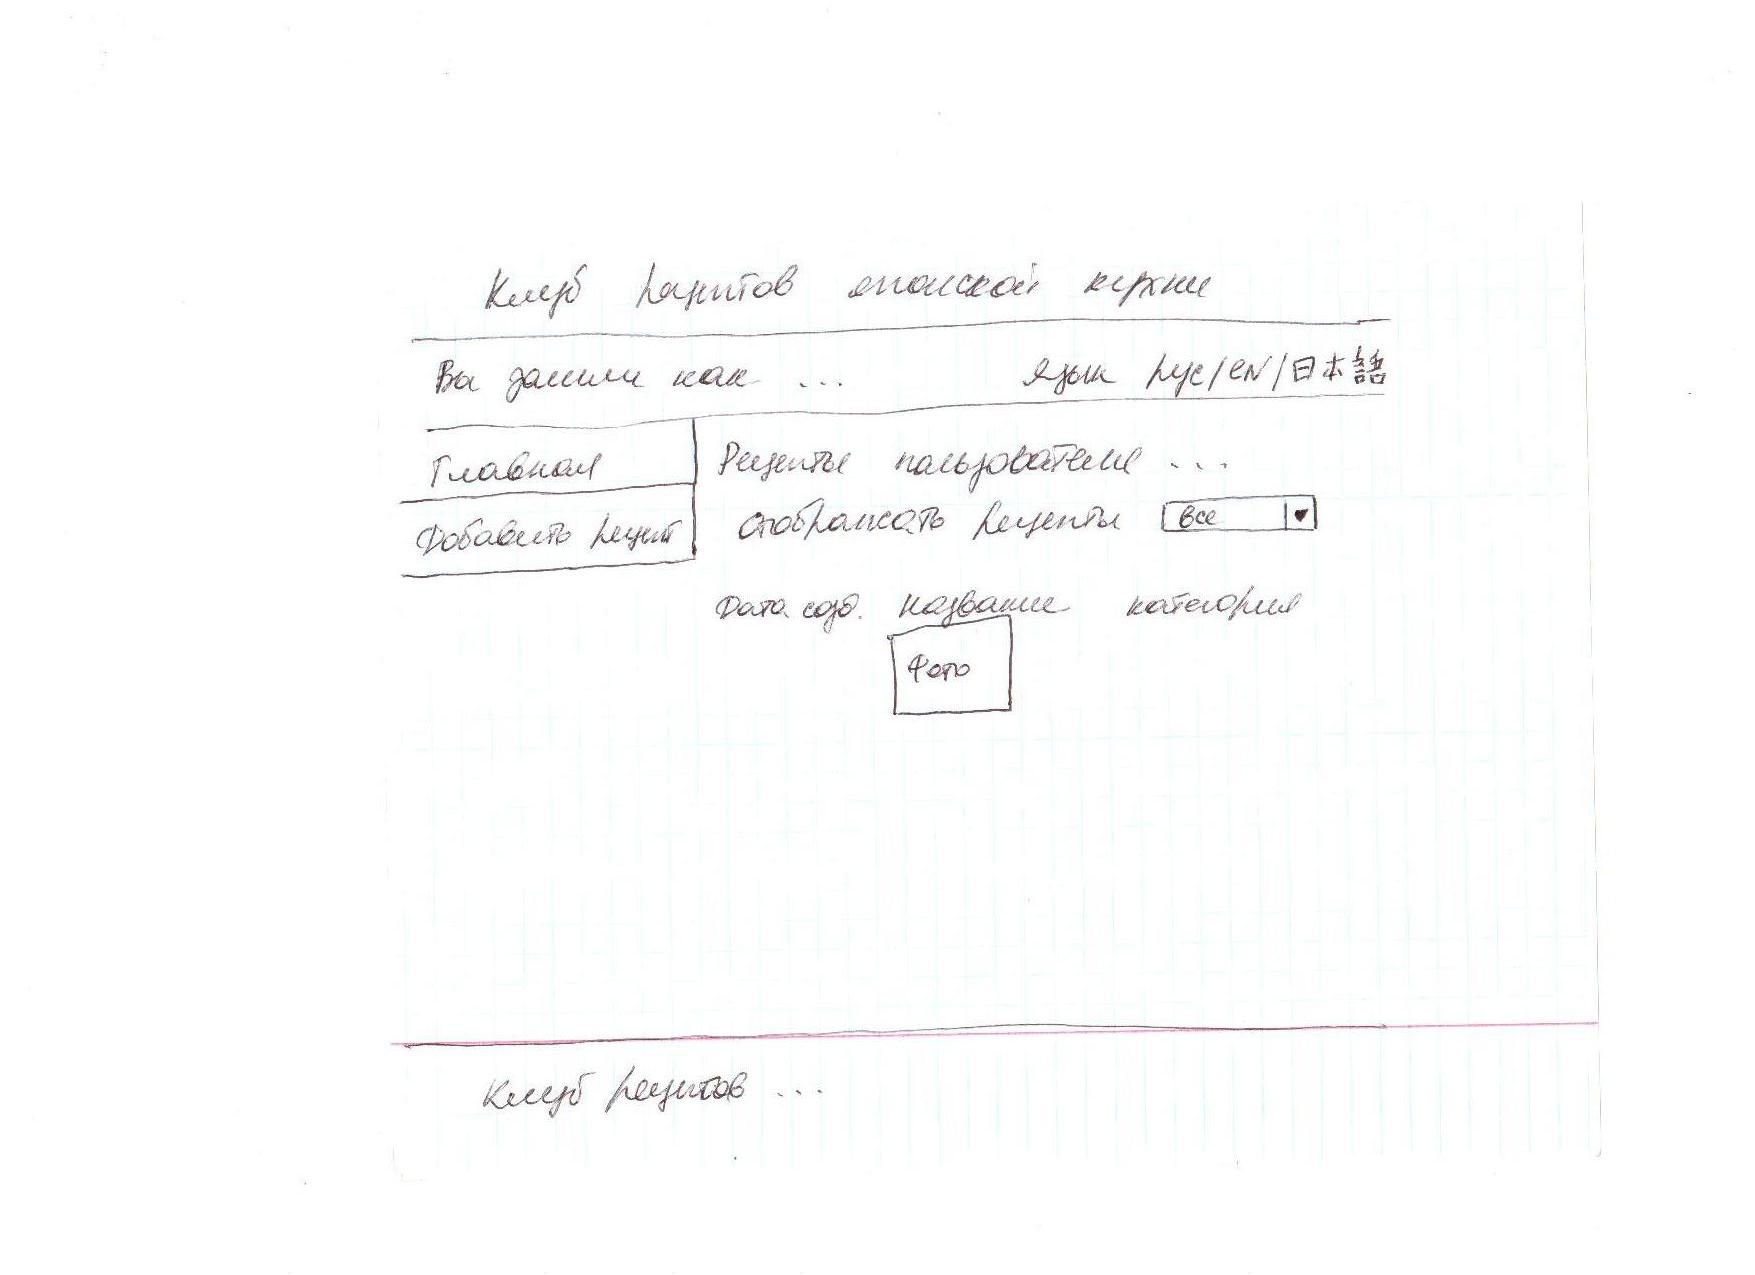 Клуб рецептов японской кухни
Вы зашли как ... язык рус/en/日本語
Главная
Рецепты пользователя ...
Добавить рецепт
Отображать рецепты все
Дата созд. название категория
Фото
Клуб рецептов ...